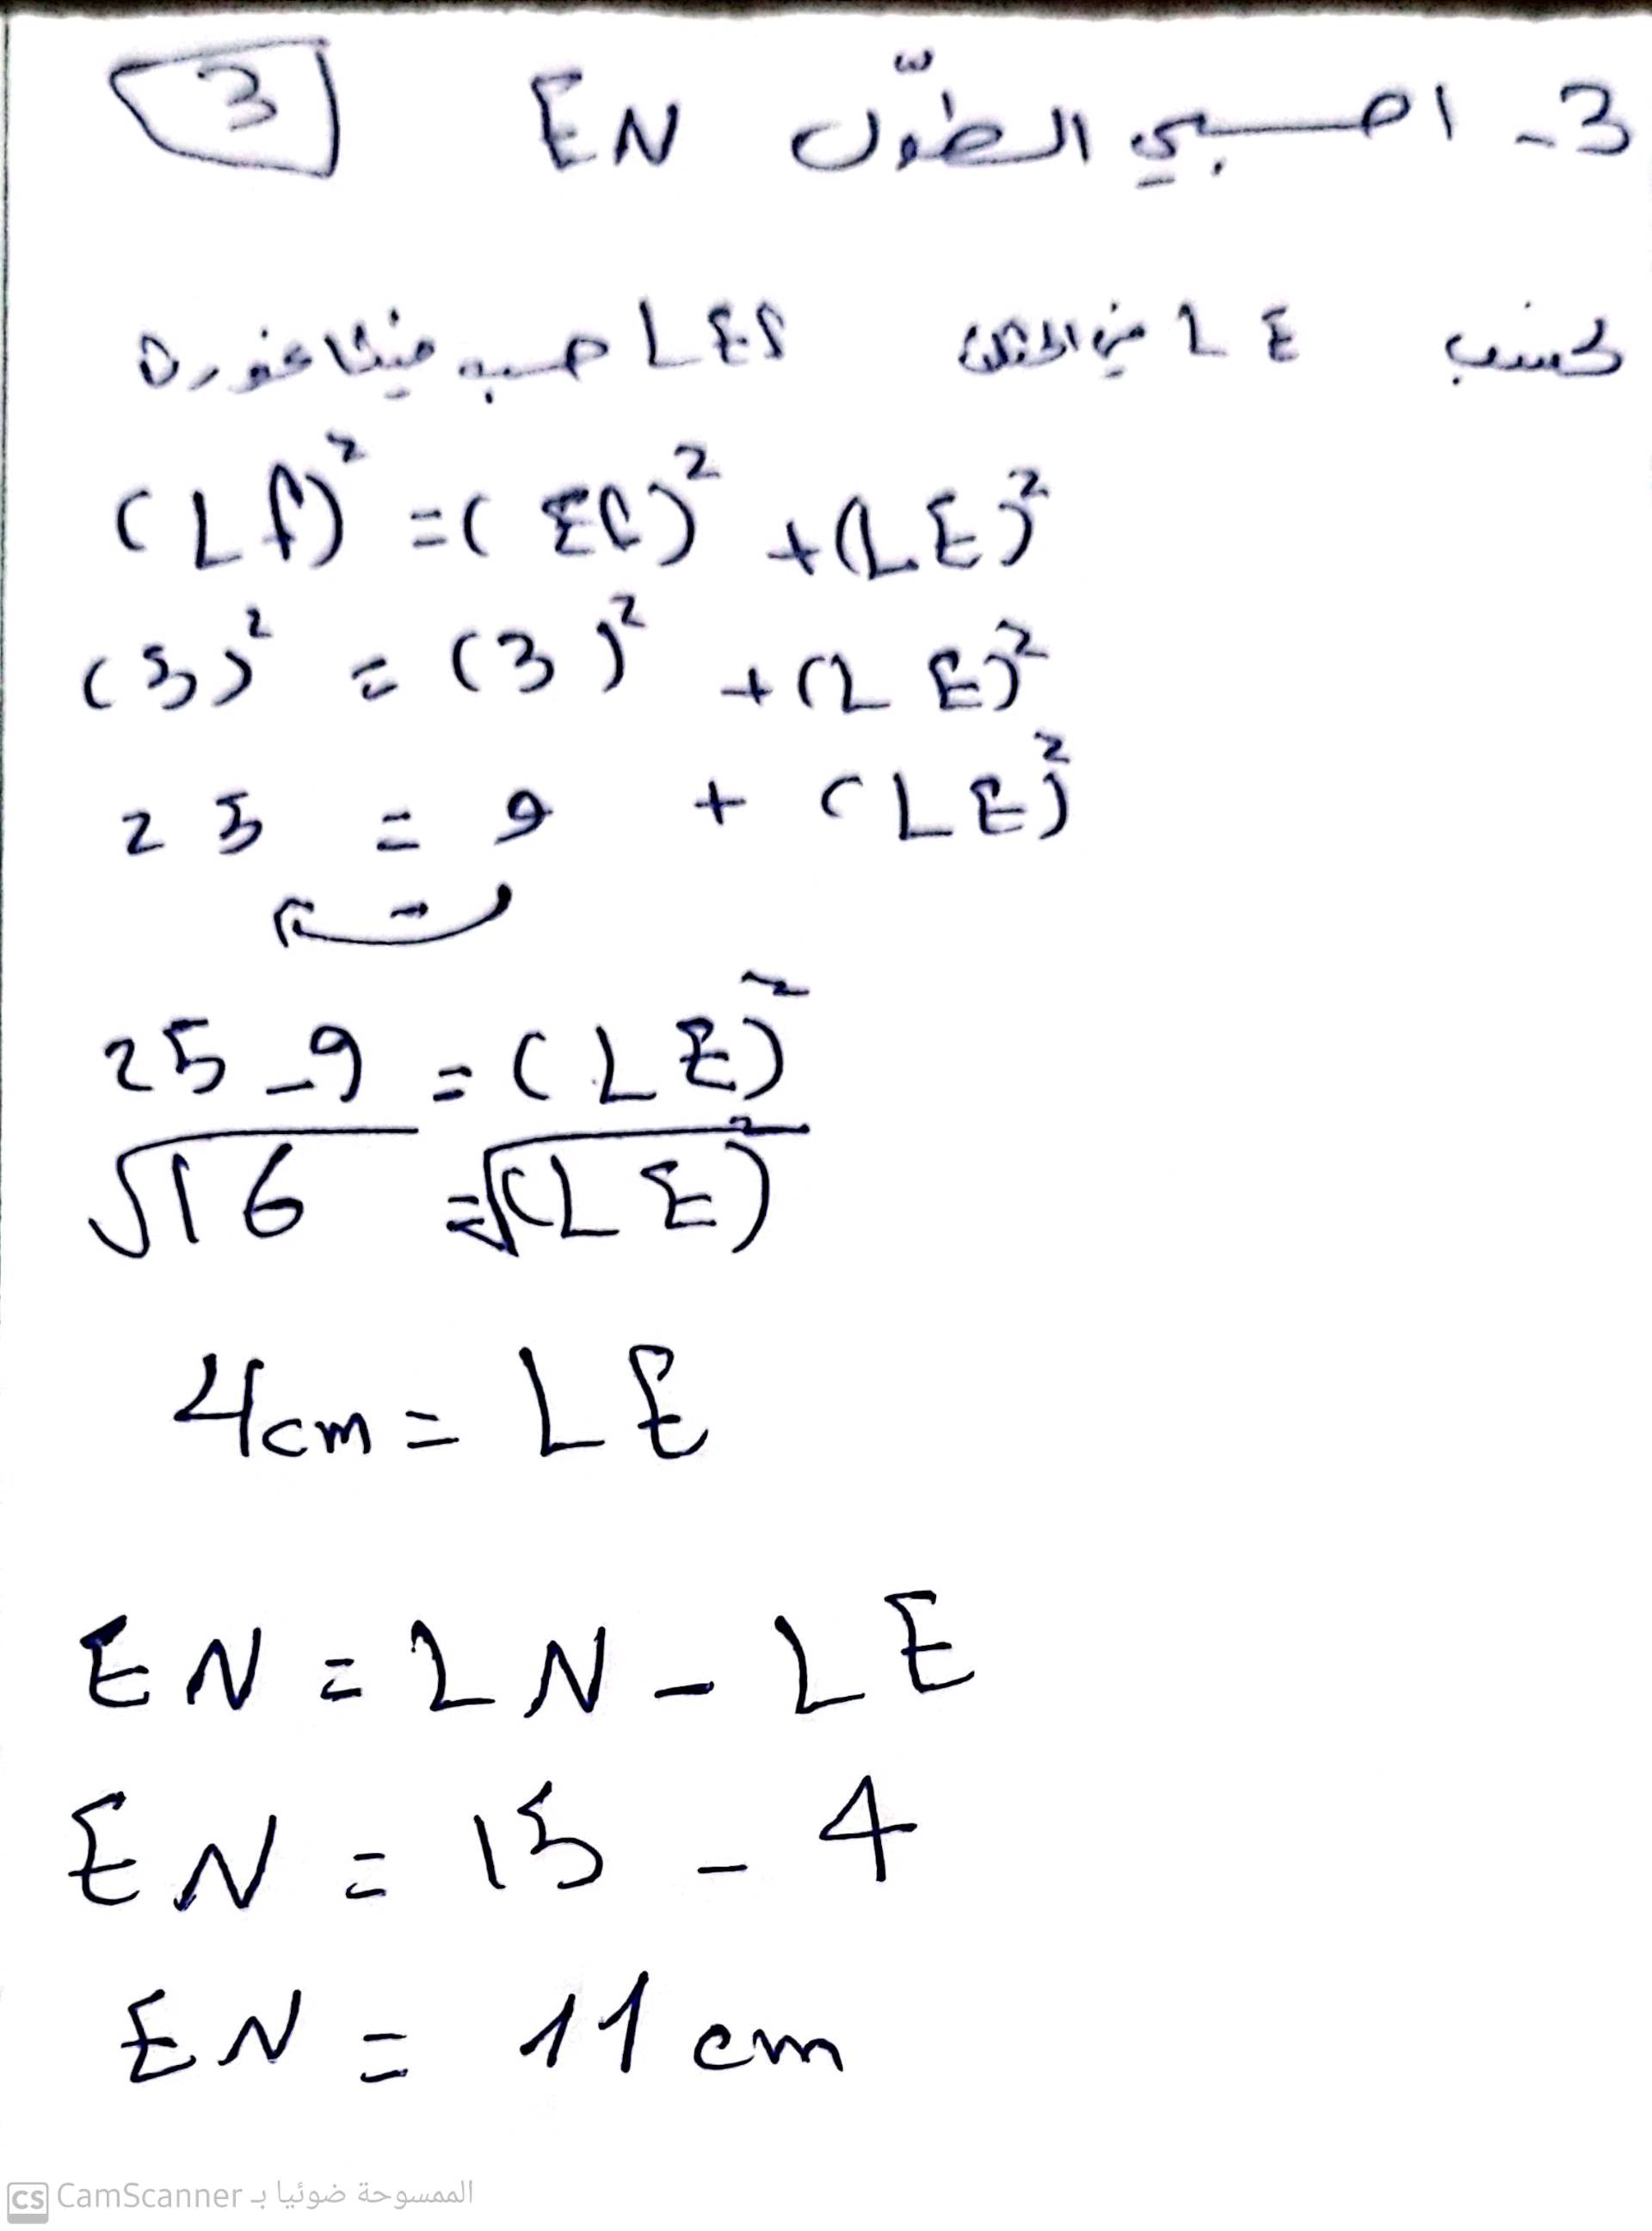 3- احسبي الطول EN
3
نحسب LE من المثلث LEf حسب فيثاغورث
(Lf)² = (Ef)² + (LE)²
(5)² = (3)² + (LE)²
25 = 9 + (LE)²
-
25 - 9 = (LE)²
√16 = √(LE)²
4cm = LE
EN = LN - LE
EN = 15 - 4
EN = 11 cm
CS CamScanner الممسوحة ضوئيا بـ